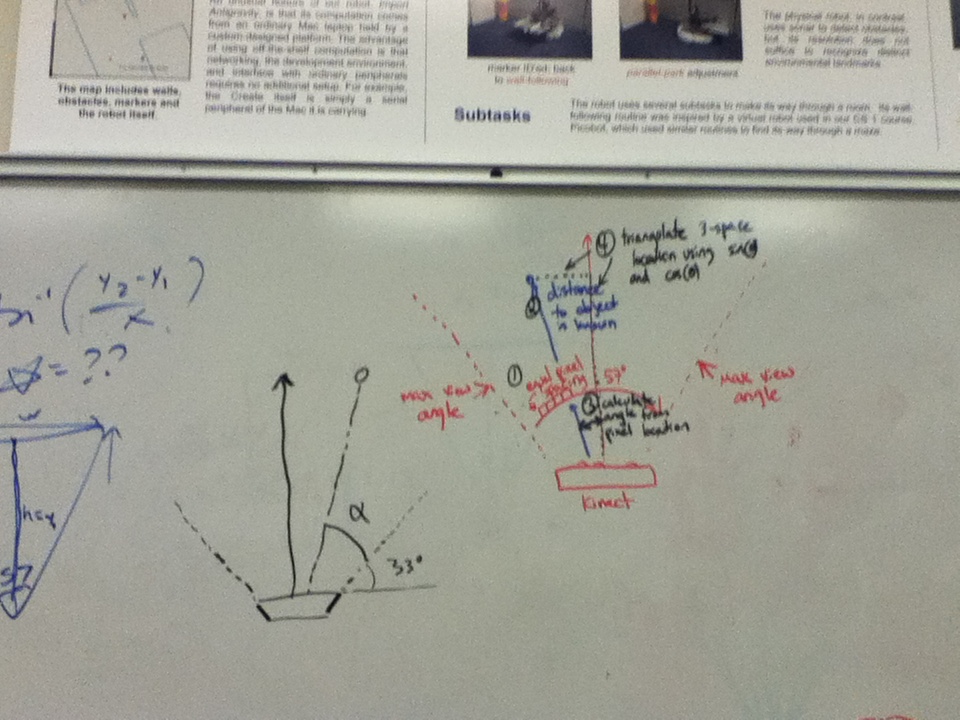 An unusual feature of our robot, Import
Antigravity, is that its computation comes
from an ordinary Mac laptop held by a
custom-designed platform. The advantage
of using off-the-shelf computation is that
networking, the development environment,
and interface with ordinary peripherals
requires no additional setup. For example,
the Create itself is simply a serial
peripheral of the Mac it is carrying.
The map includes walls,
obstacles, markers and
the robot itself.
marker ID'ed; back
to wall-following
parallel-park adjustment
The physical robot, in contrast,
uses sonar to detect obstacles,
but its resolution does not
suffice to recognize distinct
environmental landmarks.
Subtasks
The robot uses several subtasks to make its way through a room. Its wall
following routine was inspired by a virtual robot used in our CS 1 course,
Picobot, which used similar routines to find its way through a maze.
( Y2-Y1 / x )
= ??
w
h=x
57
α
33°
④ triangulate 3-space
location using sin(θ)
and cos(θ)
② distance
to object
is known
① equal pixel
spacing
57°
max view
angle
max view
angle
③ calculate
angle from
pixel location
kinect